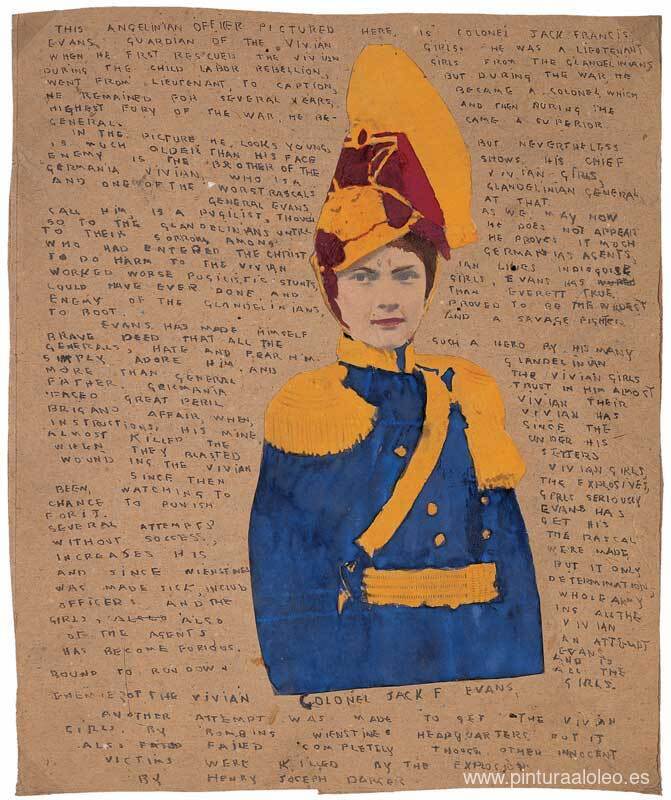 THIS ANGELINIAN OFFICER PICTURED HERE, IS COLONEL JACK FRANCIS
EVANS, GUARDIAN OF THE VIVIAN GIRLS. HE WAS A LIEUTENANT
WHEN HE FIRST RESCUED THE VIVIAN GIRLS FROM THE GLANDELINIANS
DURING THE CHILD LABOR REBELLION, BUT DURING THE WAR HE
WENT FROM LIEUTENANT, TO CAPTION, BECAME A COLONEL WHICH
HE REMAINED FOR SEVERAL YEARS, AND THEN DURING THE
HIGHEST FURY OF THE WAR, HE BE- CAME A SUPERIOR
GENERAL.
IN THE PICTURE HE LOOKS YOUNG, BUT NEVERTHELESS
IS MUCH OLDER THAN HIS FACE SHOWS. HIS CHIEF
ENEMY IS THE BROTHER OF THE VIVIAN GIRLS,
GERMANIA VIVIAN, WHO IS A GLANDELINIAN GENERAL
AND ONE OF THE WORST RASCALS AT THAT.
GENERAL EVANS AS WE MAY NOW
CALL HIM, IS A PUGILIST, THOUGH HE DOES NOT APPEAR
SO TO THE GLANDELINIANS UNTIL HE PROVES IT MUCH
TO THEIR SORROW, AMONG GERMANIAS AGENTS,
WHO HAD ENTERED THE CHRIST IAN LINES INDISGUISE
TO DO HARM TO THE VIVIAN GIRLS, EVANS HAS
WORKED WORSE PUGILISTIC STUNTS, THAN EVERETT TRUE,
COULD HAVE EVER DONE AND PROVED TO BE THE
ENEMY OF THE GLANDELINIANS, AND A SAVAGE FIGHTER
TO BOOT.
EVANS HAS MADE HIMSELF SUCH A HERO BY HIS MANY
BRAVE DEED THAT ALL THE GLANDELINIAN
GENERALS, HATE AND FEAR HIM. THE VIVIAN GIRLS
SIMPLY ADORE HIM, AND TRUST IN HIM ALMOST
MORE THAN GENERAL VIVIAN THEIR
FATHER. GERMANIA VIVIAN HAS
FACED GREAT PERIL SINCE THE
BRIGAND AFFAIR, WHEN, UNDER HIS
INSTRUCTIONS, HIS MINE SETTERS
ALMOST KILLED THE VIVIAN GIRLS
WHEN THEY BLASTED THE EXPLOSIVES,
WOUND ING THE VIVIAN GIRLS SERIOUSLY
SINCE THEN EVANS HAS
BEEN, WATCHING TO GET HIS
CHANCE TO PUNISH THE RASCAL
FOR IT.
SEVERAL ATTEMPTS WERE MADE
WITHOUT SUCCESS, BUT IT ONLY
INCREASES HIS DETERMINATION,
AND SINCE WIENSTINES WHOLE ARMY
WAS MADE SICK, INCLUD ING ALL THE
OFFICERS AND THE VIVIAN
GIRLS, ALSO AN ATTEMPT
OF THE AGENTS EVANS
HAS BECOME FURIOUS. AND IS
BOUND TO RUN DOWN ALL THE
ENEMIES OF THE VIVIAN GIRLS.
COLONEL JACK F EVANS.
ANOTHER ATTEMPT WAS MADE TO GET THE VIVIAN
GIRLS BY BOMBING WIENSTINES HEADQUARTERS BUT IT
ALSO FAILED COMPLETELY THOUGH OTHER INNOCENT
VICTIMS WERE KILLED BY THE EXPLOSION
BY HENRY JOSEPH DARGER
www.pinturaaloleo.es